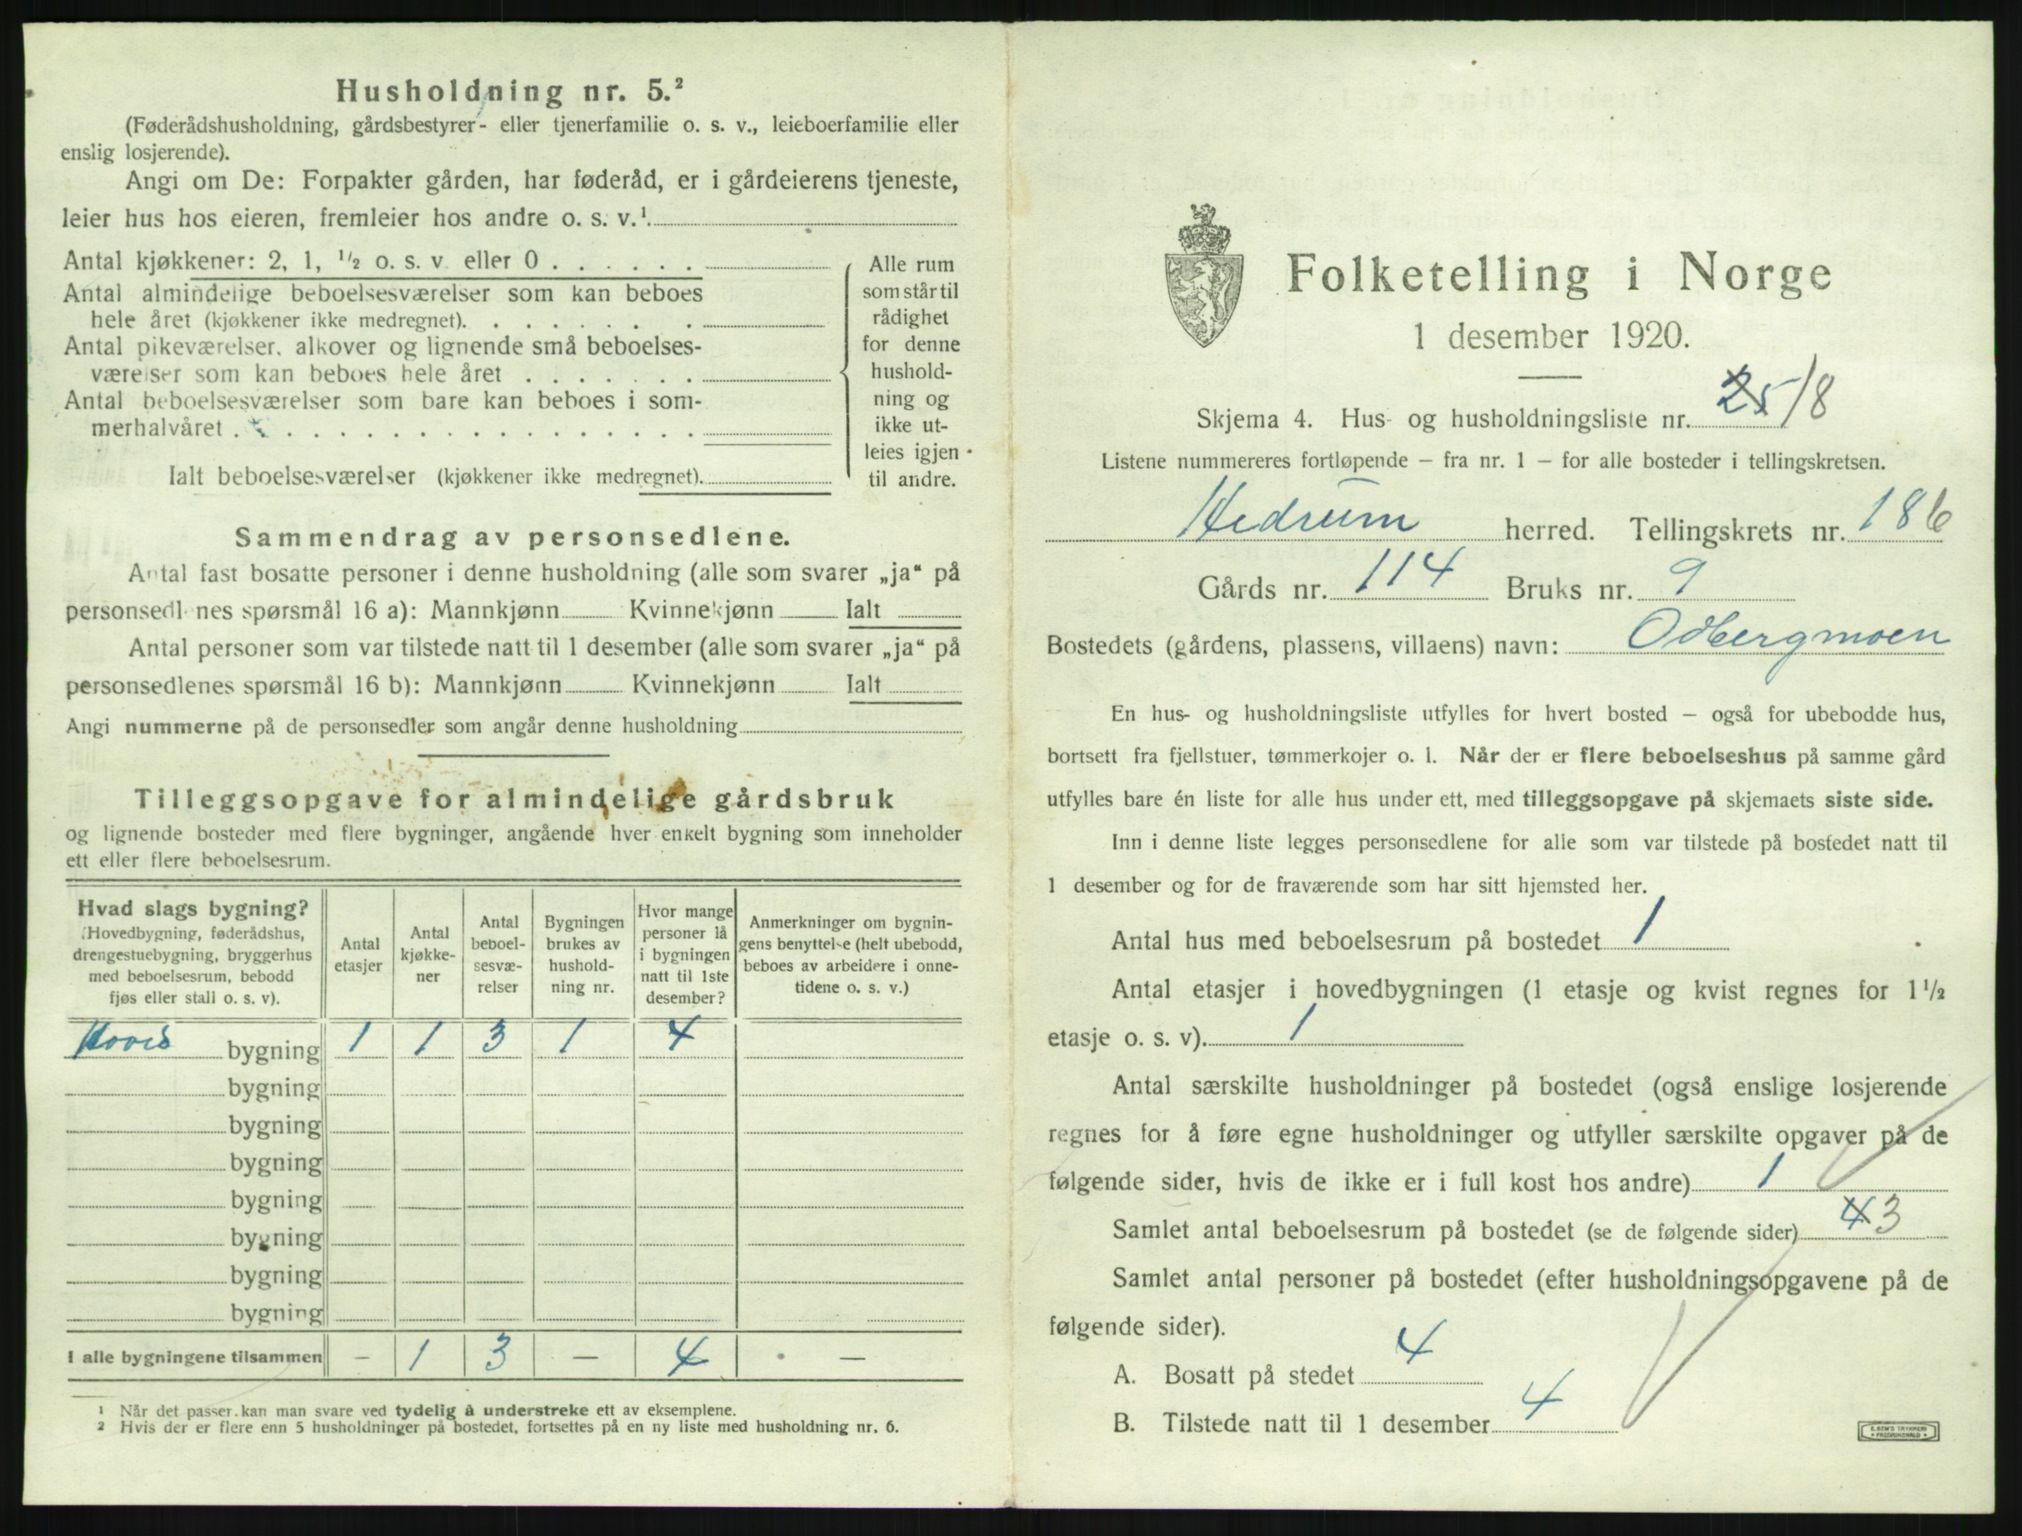 Husholdning nr. 5.²
(Føderådshusholdning, gårdsbestyrer- eller tjenerfamilie o. s. v., leieboerfamilie eller
enslig losjerende).
Angi om De: Forpakter gården, har føderåd, er i gårdeierens tjeneste,
leier hus hos eieren, fremleier hos andre o. s. v.¹
Antal kjøkkener: 2, 1, ½ o. s. v. eller 0 . . . . . .
Antal almindelige beboelsesværelser som kan beboes
hele året (kjøkkener ikke medregnet). . . . . . . .
Antal pikeværelser, alkover og lignende små beboelses-
værelser som kan beboes hele året . . . . . . .
Antal beboelsesværelser som bare kan beboes i som-
merhalvåret . . . . . . . . . . . . . . . . .
Ialt beboelsesværelser (kjøkkener ikke medregnet).
Alle rum
som står til
rådighet
for denne
hushold-
ning og
ikke ut-
leies igjen
til andre.
Sammendrag av personsedlene.
Antal fast bosatte personer i denne husholdning (alle som svarer „ja“ på
personsedlenes spørsmål 16 a): Mannkjønn Kvinnekjønn Ialt
Antal personer som var tilstede natt til 1 desember (alle som svarer „ja“ på
personsedlenes spørsmål 16 b): Mannkjønn Kvinnekjønn Ialt
Angi nummerne på de personsedler som angår denne husholdning
Tilleggsopgave for almindelige gårdsbruk
og lignende bosteder med flere bygninger, angående hver enkelt bygning som inneholder
ett eller flere beboelsesrum.
Hvad slags bygning?
(Hovedbygning, føderådshus,
drengestuebygning, bryggerhus
med beboelsesrum, bebodd
fjøs eller stall o. s. v).
Antal
etasjer
Antal
kjøkke-
ner
Antal
beboel-
sesvæ-
relser
Bygningen
brukes av
hushold-
ning nr.
Hvor mange
personer lå
i bygningen
natt til 1ste
desember?
Anmerkninger om bygnin-
gens benyttelse (helt ubebodd,
beboes av arbeidere i onne-
tidene o. s. v.)
Hoved bygning 1 1 3 1 4
bygning
bygning
bygning
bygning
bygning
bygning
bygning
I alle bygningene tilsammen – 1 3 – 4 –
¹ Når det passer kan man svare ved tydelig å understreke ett av eksemplene.
² Hvis der er flere enn 5 husholdninger på bostedet, fortsettes på en ny liste med husholdning nr. 6.
Folketelling i Norge
1 desember 1920.
Skjema 4. Hus- og husholdningsliste nr. 25/8
Listene nummereres fortløpende – fra nr. 1 – for alle bosteder i tellingskretsen.
Hedrum herred. Tellingskrets nr. 186
Gårds nr. 114 Bruks nr. 9
Bostedets (gårdens, plassens, villaens) navn: Odbergmoen
En hus- og husholdningsliste utfylles for hvert bosted – også for ubebodde hus,
bortsett fra fjellstuer, tømmerkojer o. l. Når der er flere beboelseshus på samme gård
utfylles bare én liste for alle hus under ett, med tilleggsopgave på skjemaets siste side.
Inn i denne liste legges personsedlene for alle som var tilstede på bostedet natt til
1 desember og for de fraværende som har sitt hjemsted her.
Antal hus med beboelsesrum på bostedet 1
Antal etasjer i hovedbygningen (1 etasje og kvist regnes for 1½
etasje o. s. v). 1
Antal særskilte husholdninger på bostedet (også enslige losjerende
regnes for å føre egne husholdninger og utfyller særskilte opgaver på de
følgende sider, hvis de ikke er i full kost hos andre) 1
Samlet antal beboelsesrum på bostedet (se de følgende sider) 4 3
Samlet antal personer på bostedet (efter husholdningsopgavene på de
følgende sider).
A. Bosatt på stedet 4
B. Tilstede natt til 1 desember 4